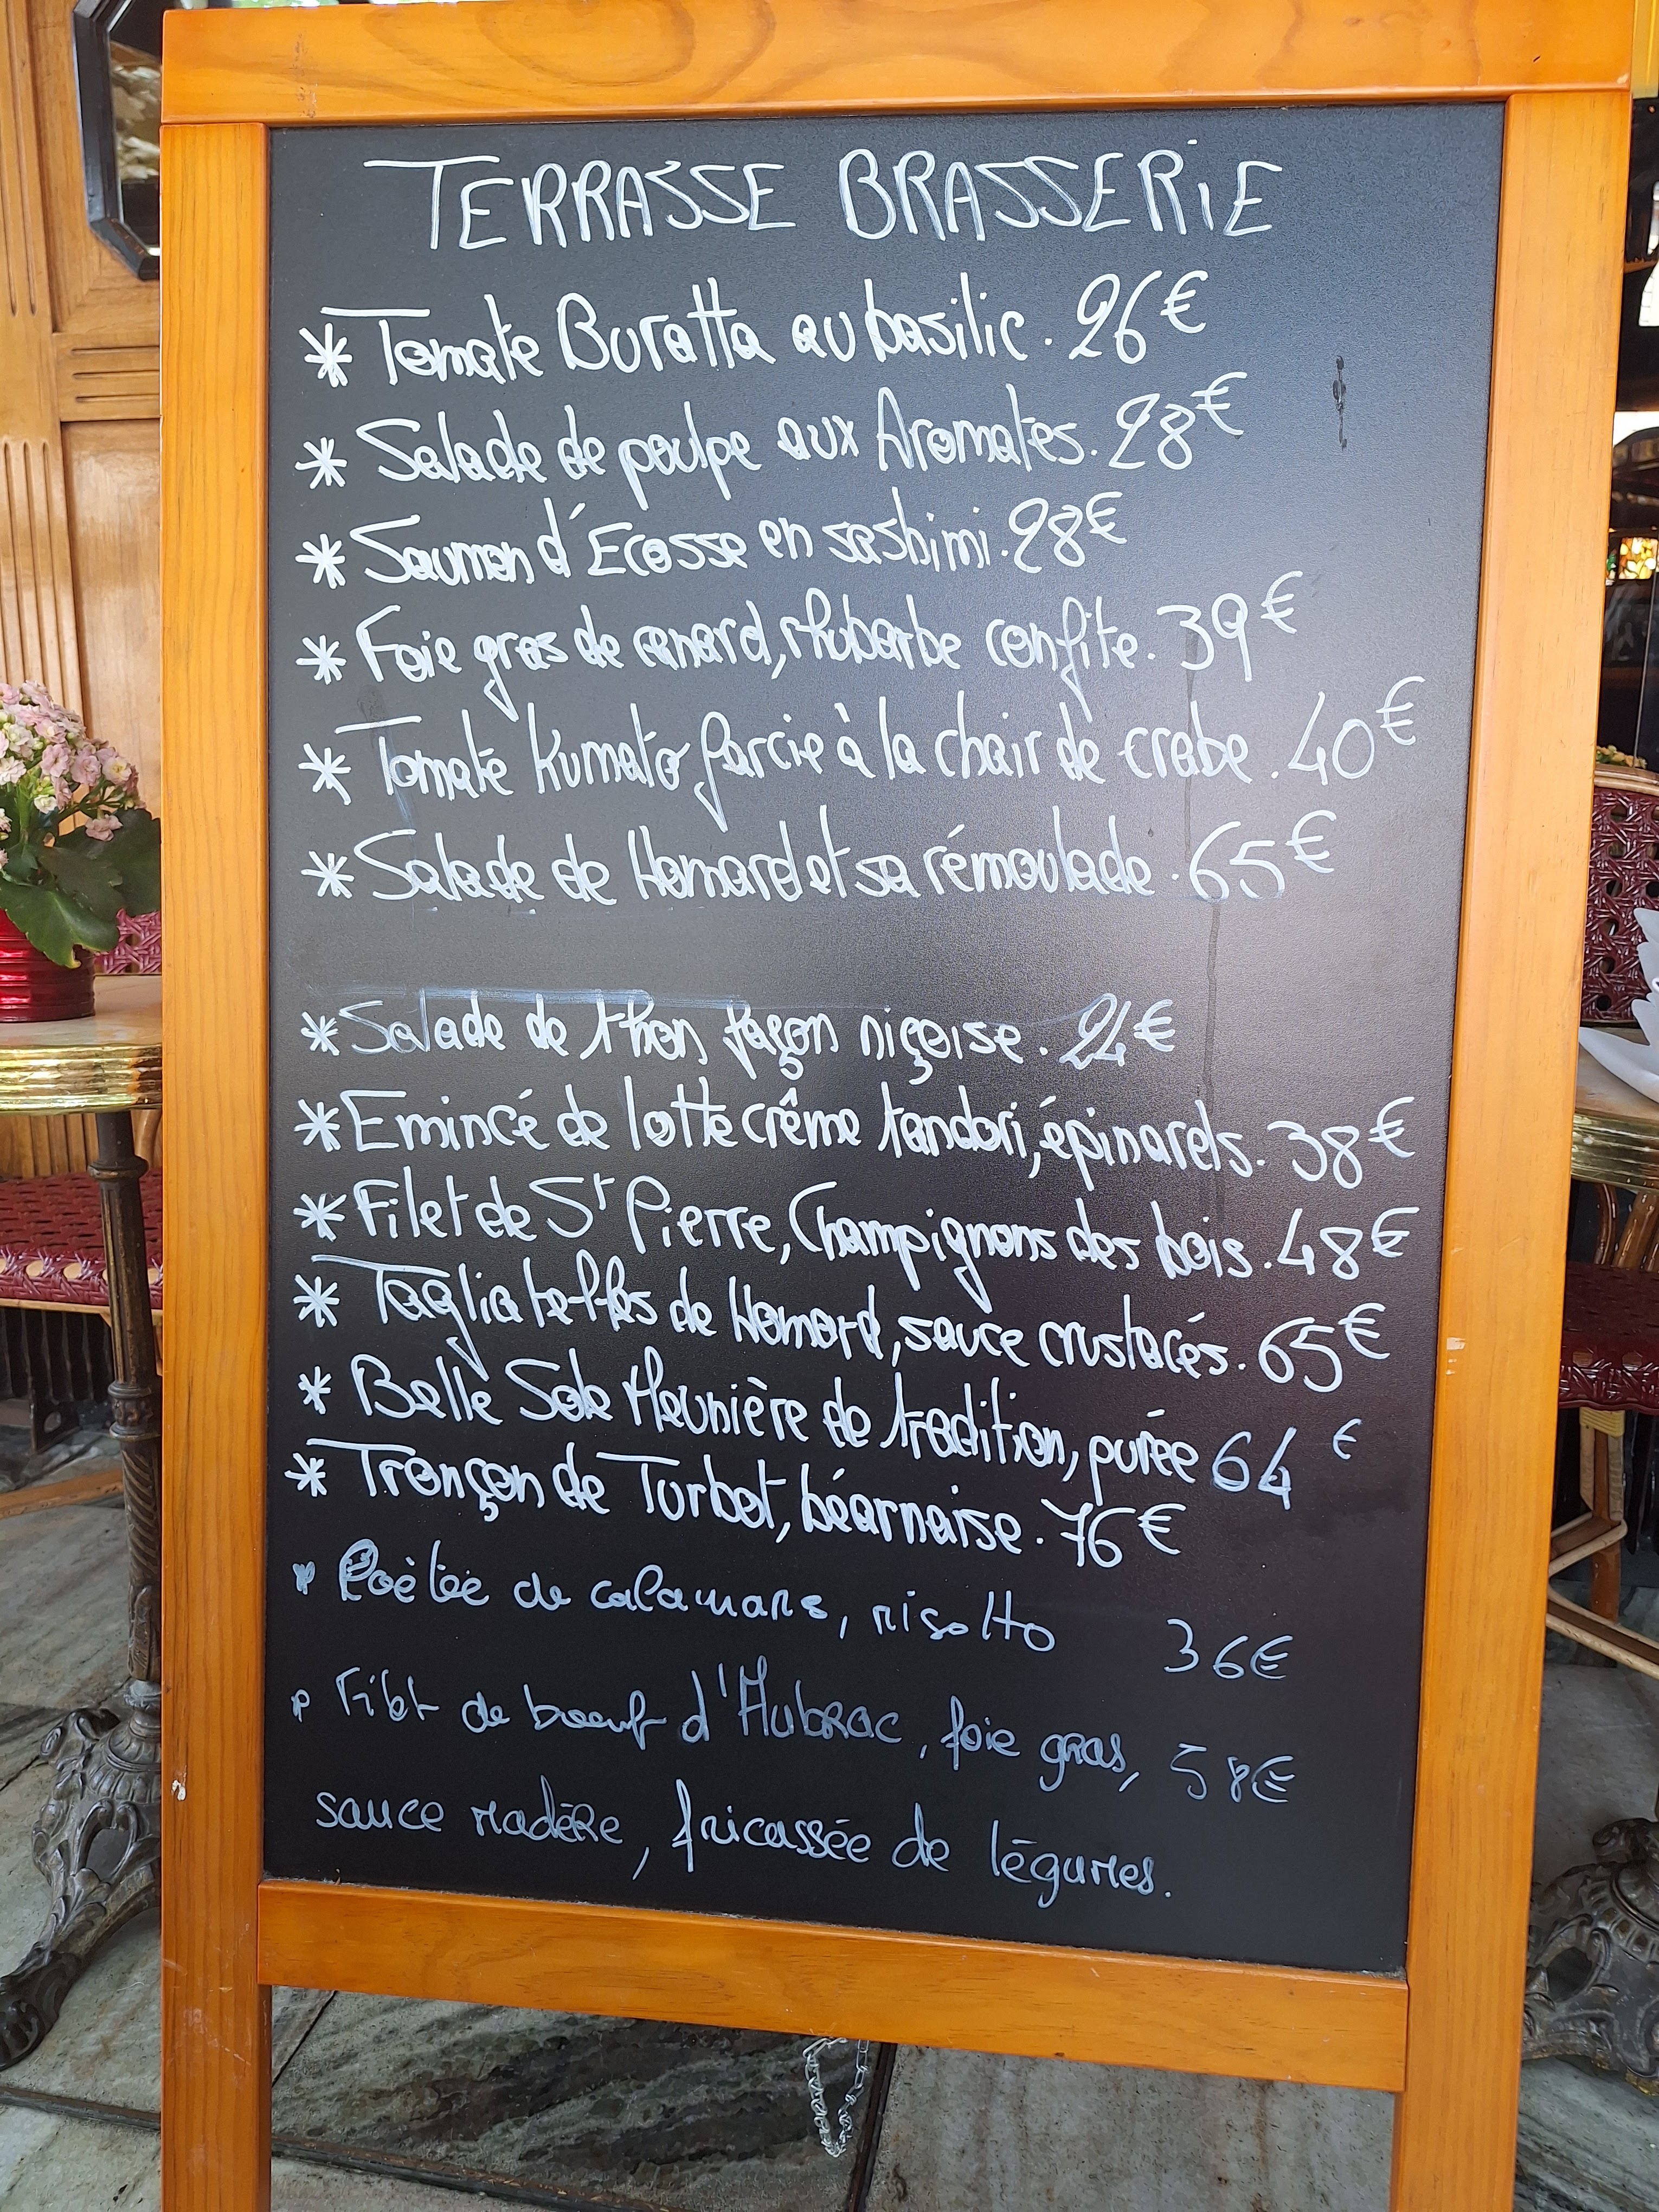 TERRASSE BRASSERiE
* Tomate Buratta au basilic. 26€
* Salade de poulpe aux Aromates. 28€
* Saumon d'Ecosse en sashimi. 28€
* Foie gras de canard, rhubarbe confite. 39€
* Tomate Kumato farcie à la chair de crabe. 40€
* Salade de Homard et sa rémoulade. 65€
* Salade de thon façon niçoise. 24€
* Emincé de lotte crême tandori, épinards. 38€
* Filet de St Pierre, Champignons des bois. 48€
* Tagliatelles de Homard, sauce crustacés. 65€
* Belle Sole Meunière de tradition, purée 64 €
* Tronçon de Turbot, béarnaise. 76€
Poèlée de calamars, risotto 36€
Filet de boeuf d'Aubrac, foie gras, 58€
sauce madère, fricassée de légumes.